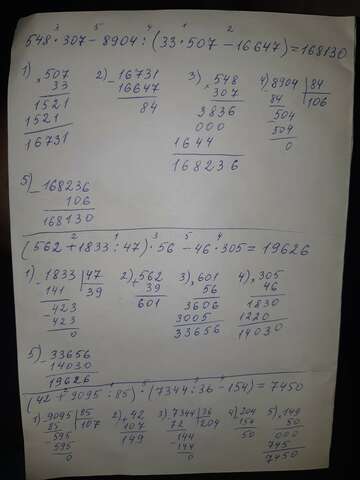 3 5 4 1 2
548·307-8904:(33·507-16647)=168130
1) ×507 2) -16731 3) ×548 4) -8904 | 84
33 16647 307 84 106
1521 84 3836 -504
1521 000 504
16731 1644 0
168236
5) -168236
106
168130
2 1 3 5 4
(562+1833:47)·56-46·305=19626
1) -1833 | 47 2) +562 3) ×601 4) ×305
141 39 39 56 46
-423 601 3606 1830
423 3005 1220
0 33656 14030
5) -33656
14030
19626
2 1 5 3 4
(42+9095:85)·(7344:36-154)=7450
1) -9095 | 85 2) +42 3) -7344 | 36 4) -204 5) ×149
85 107 107 72 204 154 50
-595 149 -144 50 000
595 144 745
0 0 7450